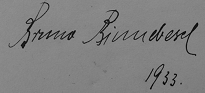 Bruno Binnebesel
1933.